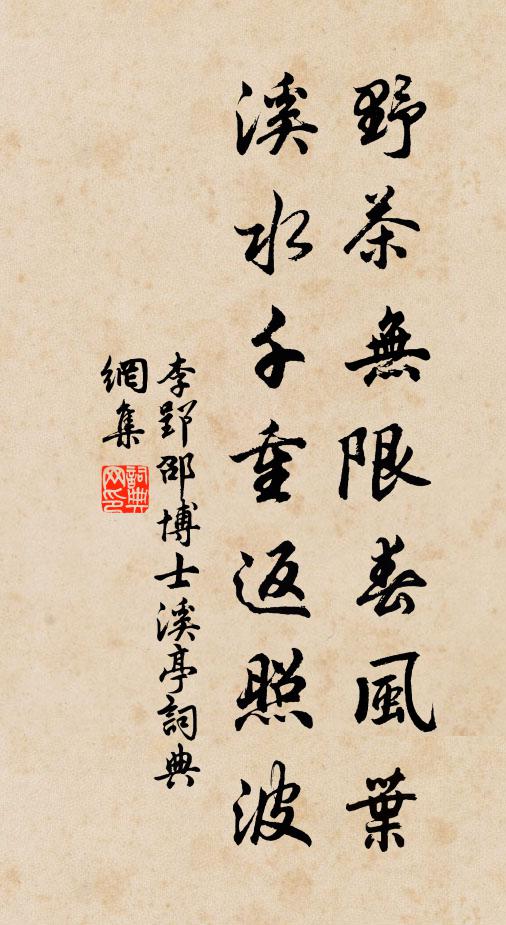 野茶無限春風葉
溪水千重返照波
李郢邵博士溪亭詞典
網集
詞典網印